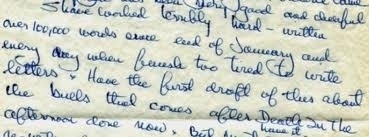 good and cheerful
I have worked terribly hard - written
over 100,000 words since end of January and
every day when finish too tired to write
letters. Have the first draft of this about
the bulls that comes after Death In The
have it
afternoon done now. But